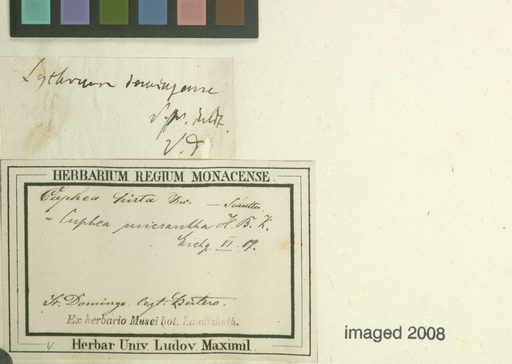 Lythrum domingense
HERBARIUM REGIUM MONACENSE
Cuphea hirta
= Cuphea micrantha H. B. K.
VI. 09.
St. Domingo legt. Bertero.
Ex herbario Musei bot. Landishuth.
Herbar Univ. Ludov. Maximil.
imaged 2008